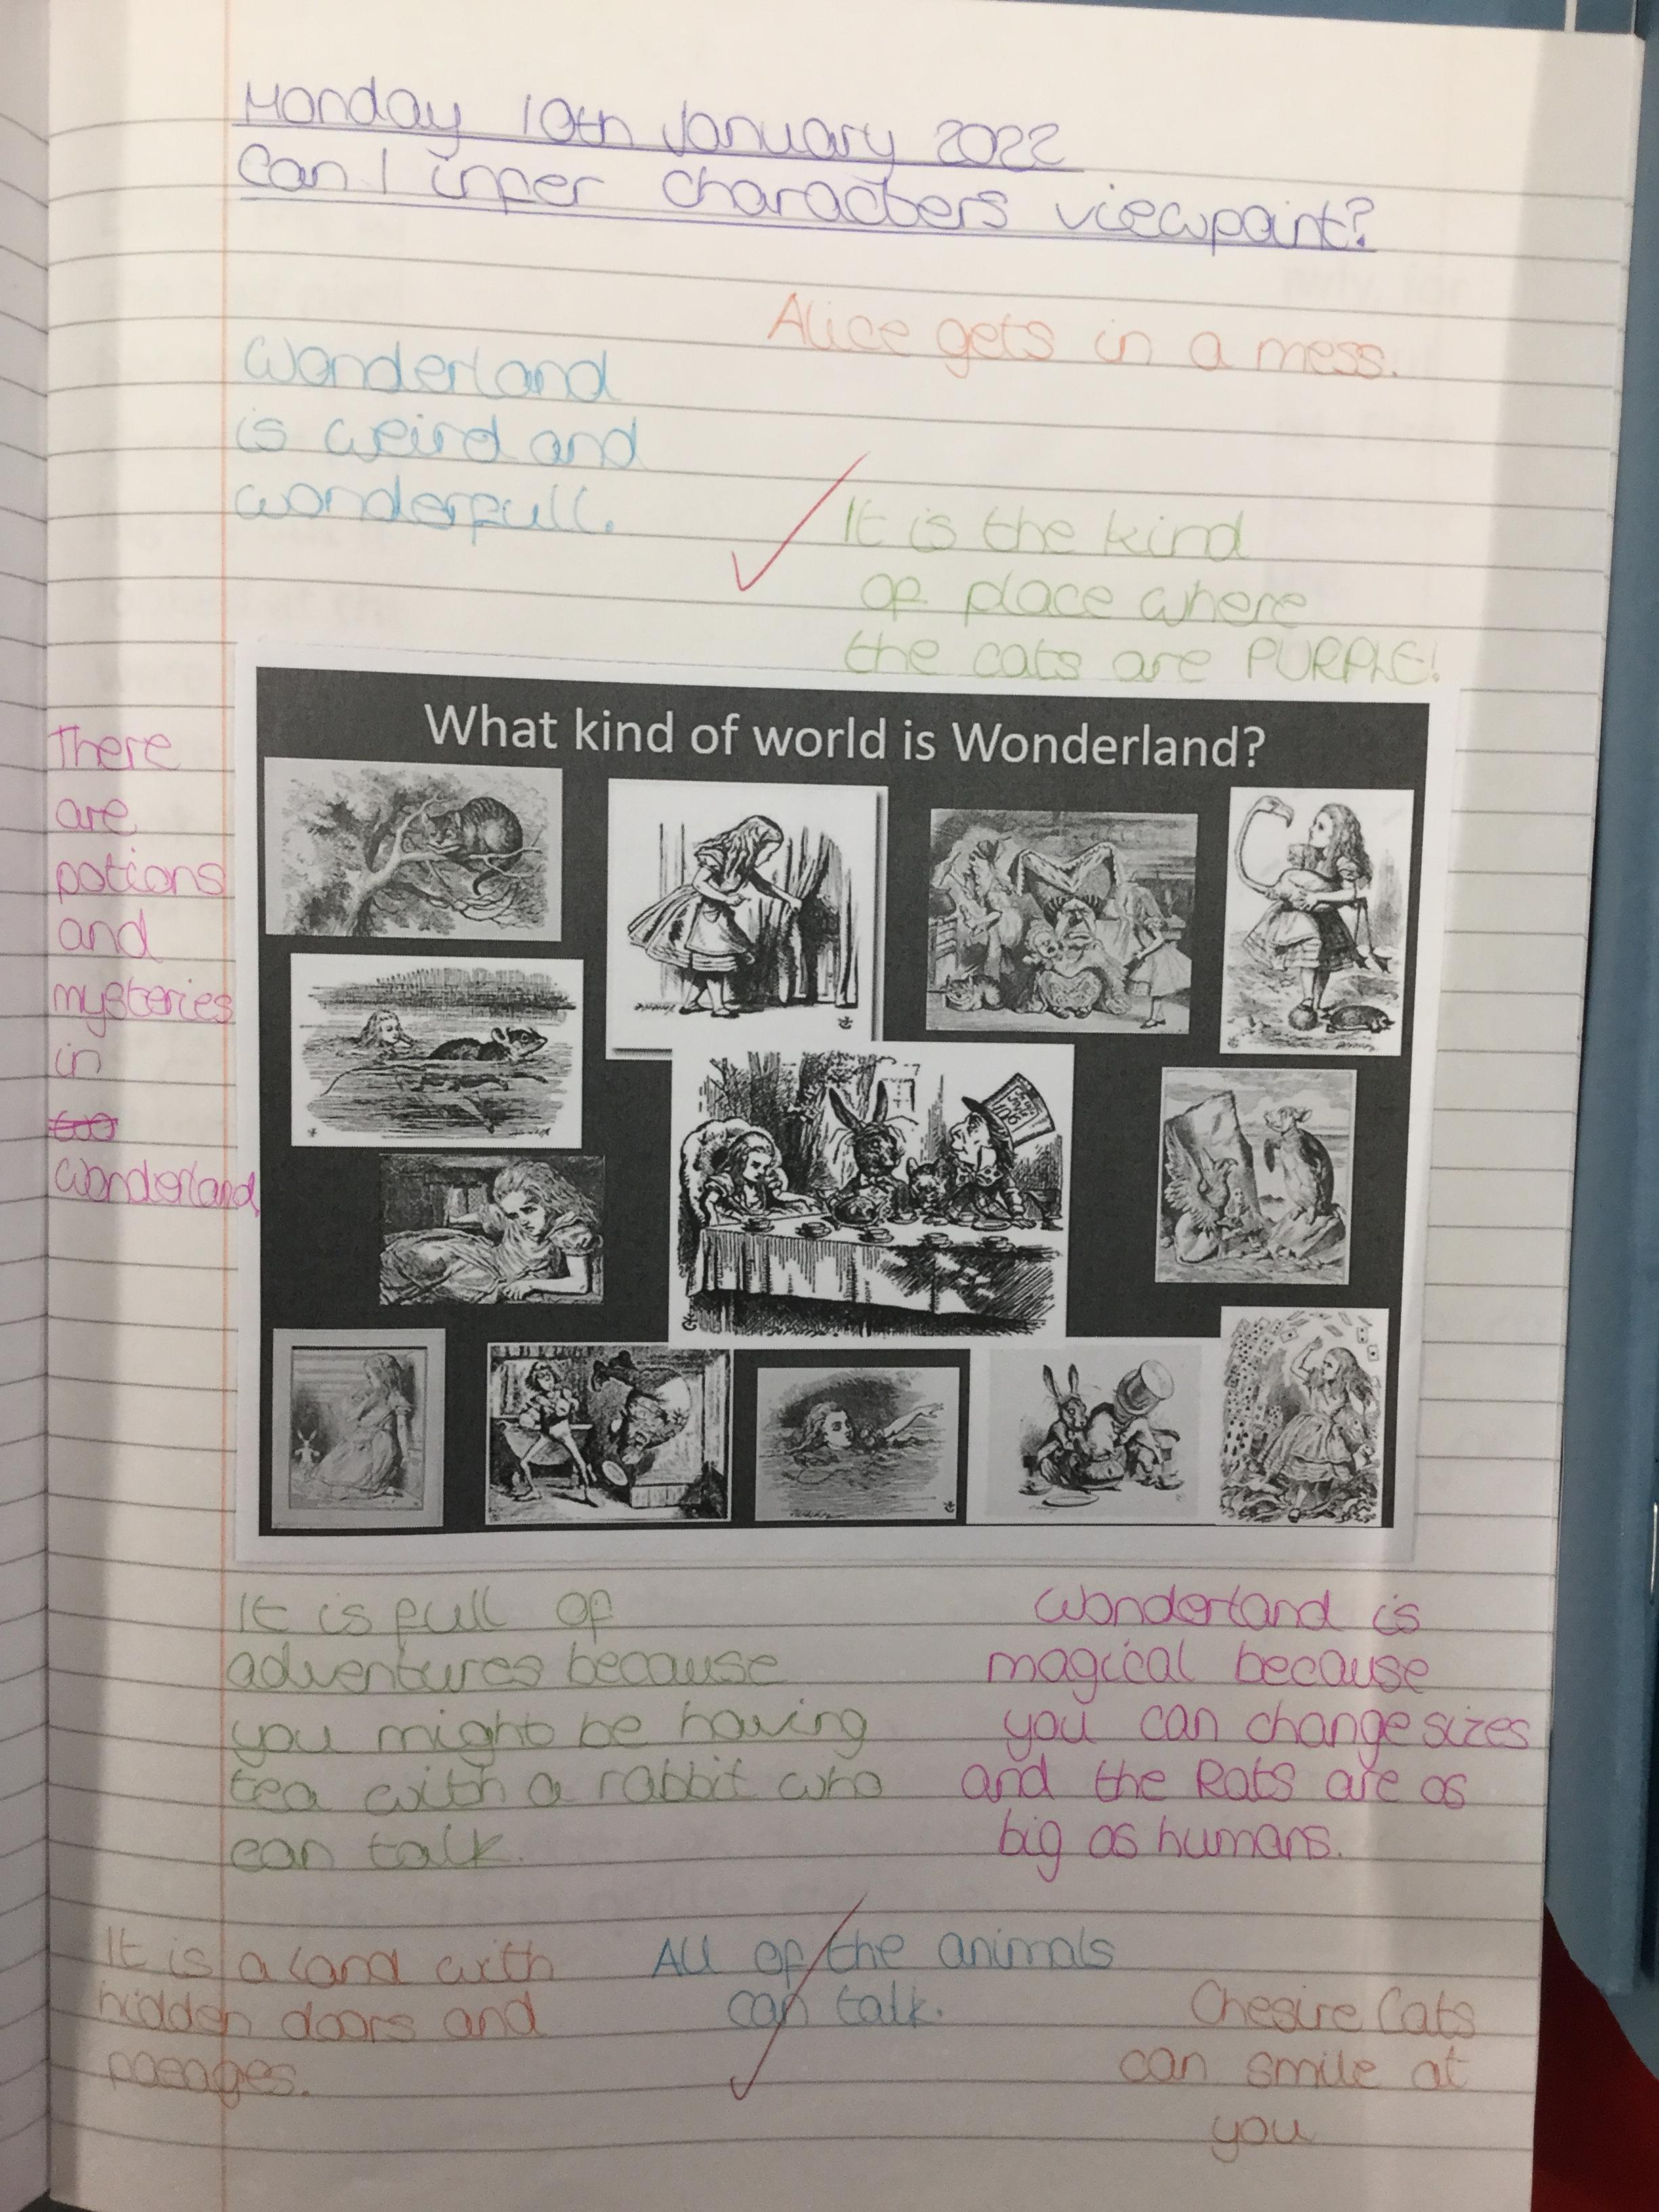 Monday 10th January 2022
Can I infer characters viewpoint?
Alice gets in a mess.
Wonderland
is weird and
wonderfull.
It is the kind
of place where
the cats are PURPLE!
There
are
potions
and
mysteries
in
Wonderland
What kind of world is Wonderland?
It is full of
adventures because
you might be having
tea with a rabbit who
can talk.
Wonderland is
magical because
you can change sizes
and the Rats are as
big as humans.
It is a land with
hidden doors and
pasages.
All of the animals
can talk.
Chesire Cats
can smile at
you